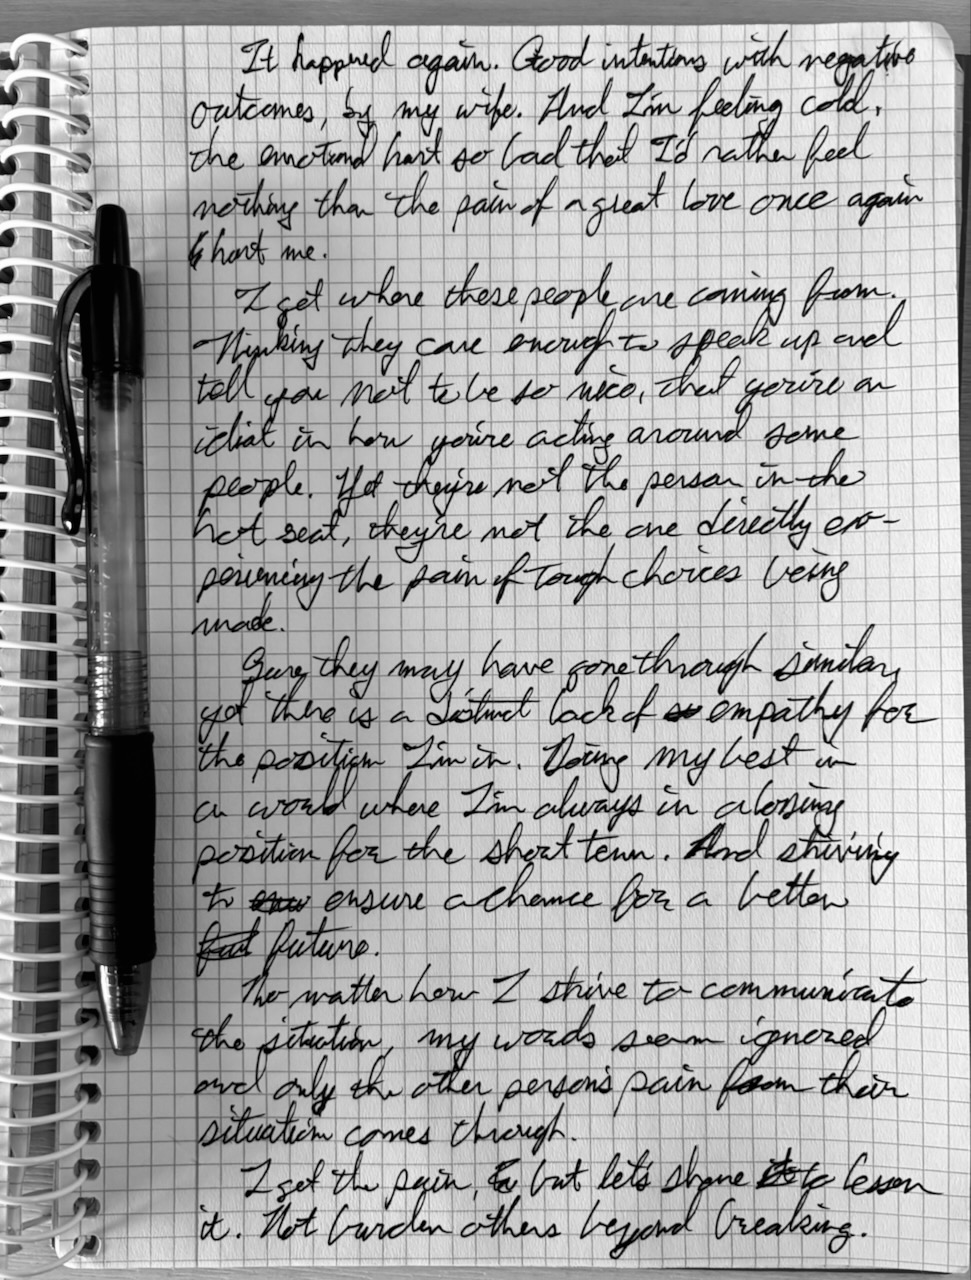 It happened again. Good intentions with negative
outcomes, by my wife. And I'm feeling cold,
the emotional hurt so bad that I'd rather feel
nothing than the pain of a great love once again
hurt me.
I get where these people are coming from.
Thinking they care enough to speak up and
tell you not to be so nice, that you're an
idiot in how you're acting around some
people. Yet they're not the person in the
hot seat, they're not the one directly ex-
periencing the pain of tough choices being
made.
Sure, they may have gone through similar,
yet there is a distinct lack of empathy for
the position I'm in. Doing my best in
a world where I'm always in a losing
position for the short term. And striving
to ensure a chance for a better
future.
No matter how I strive to communicate
the situation, my words seem ignored
and only the other person's pain from their
situation comes through.
I get the pain, but let's share to lessen
it. Not burden others beyond breaking.